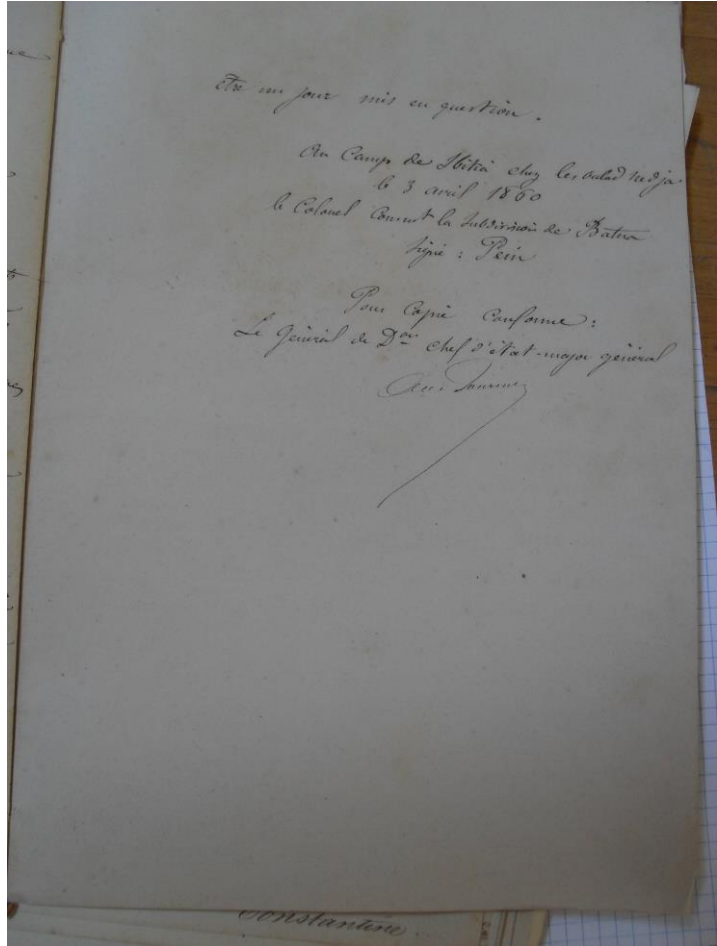 être un jour mis en question.
Au Camp de Sbikia chez les oulad nedja
le 3 avril 1860
le Colonel Commt la Subdivision de Batna
Signé : Pein
Pour Copie Conforme :
Le Général de Don chef d'état-major général
Constantine